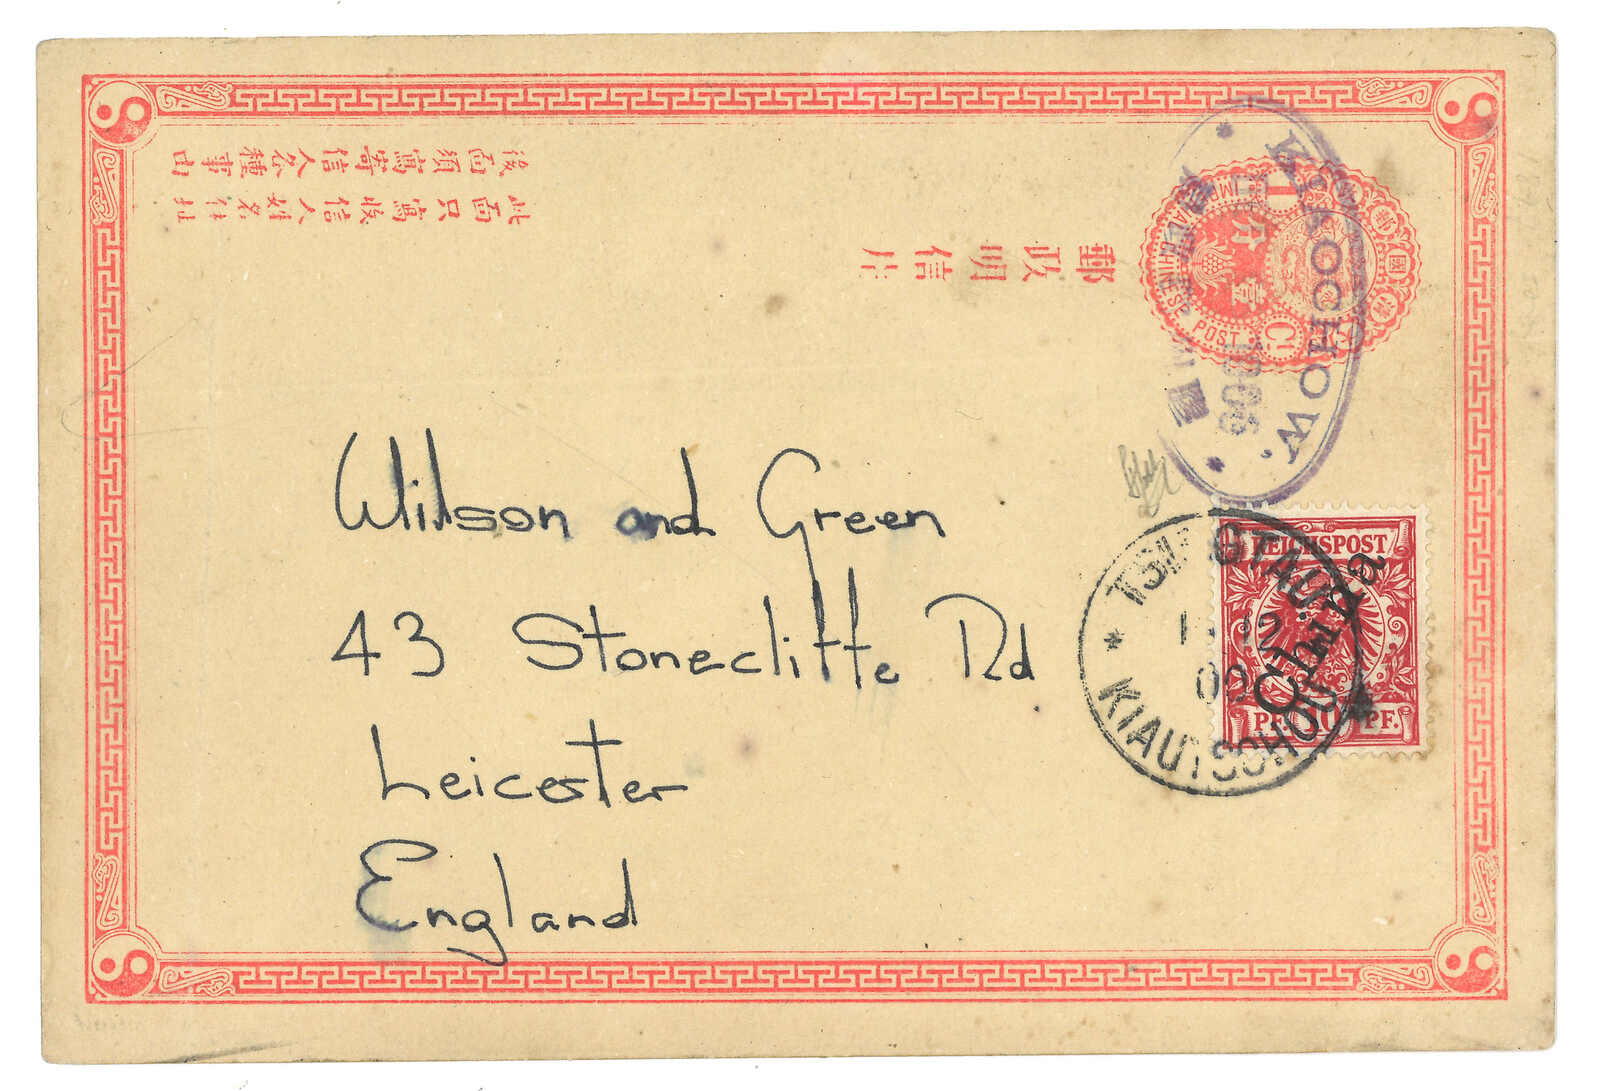 後面須寫寄信人各種事由
此面只寫收信人姓名住址
郵政明信片
大清國郵政
IMPERIAL CHINESE POST
1 Ct
壹分
KIAOCHOW.
1900
REICHSPOST
China
PF. 10 PF.
TSINGTAU
12
KIAUTSCHOU
Wilson and Green
43 Stonecliffe Rd
Leicester
England